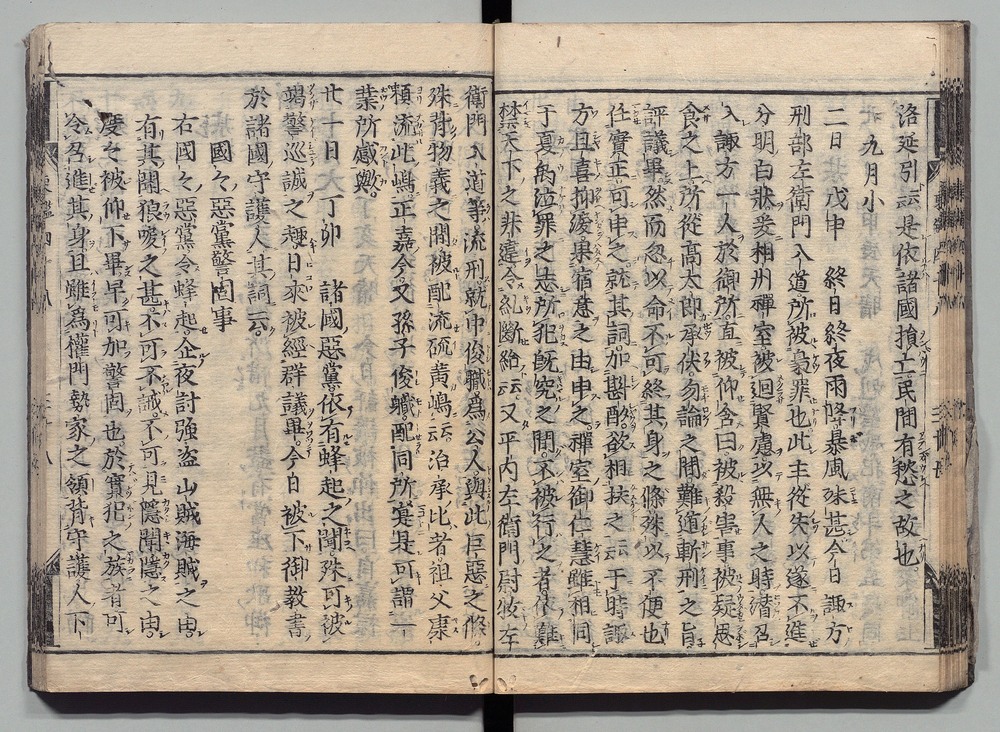 洛延引云云是依諸國損亡民間有愁之故也
九月小
二日 戊申 終日終夜雨降暴風殊甚今日諏方
刑部左衛門入道所被梟罪也此主從共以遂不進
分明白狀爰相州禪室被廻賢慮以無人之時潜召
入諏方一人於御所直被仰含曰被殺害事被疑思
食之上所從高太即承伏勿論之間難遁斬刑之旨
評議畢然而忽以命不可終其身之條殊以不便也
任實正可申之就其詞加斟酌欲相扶之云云于時諏
方且喜抑淚果宿意之由申之禪室御仁慧雖相同
于夏禹泣罪之志所犯既究之間不被行之者依難
禁天下之非違令糺斷給云云又平内左衛門尉牧左
衛門入道等流刑就中俊職爲公人與此巨惡之條
殊背物義之間被配流硫黄嶋云云治承比者祖父康
頼流此嶋正嘉今又孫子俊軄配同所寔是可謂一
葉所感歟
廿十日 丁卯 諸國惡黨依有蜂起之聞殊可被
竭警巡誡之趣日來被經群議畢今日被下御教書
於諸國守護人其詞云
國々惡黨警固事
右國々惡黨令蜂起企夜討強盗山賊海賊之由
有其聞狼唳之甚不可不誡不可見隱聞隱之由
度々被仰下畢早可加警固也於實犯之族者可
令召進其身且雖爲權門勢家之領背守護人下